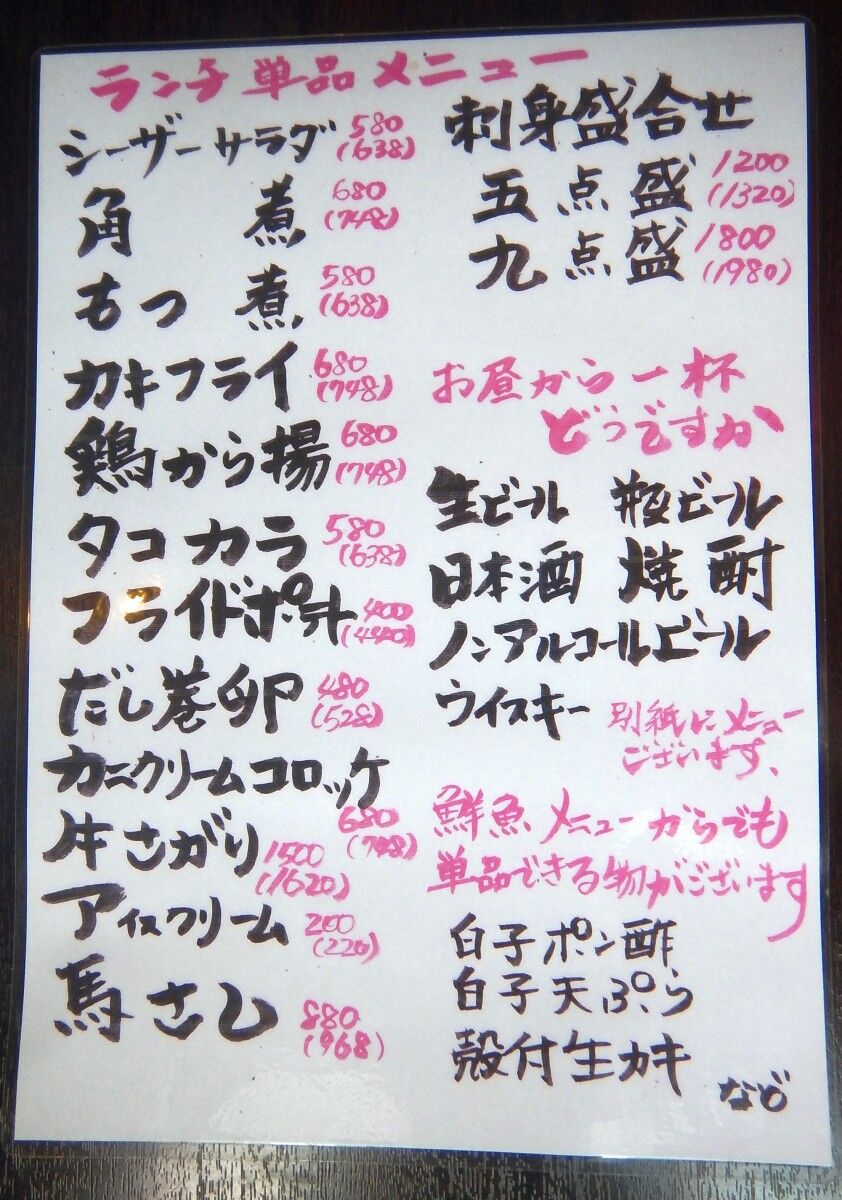 ランチ単品メニュー
シーザーサラダ 580
(638)
角煮 680
(748)
もつ煮 580
(638)
カキフライ 680
(748)
鶏から揚 680
(748)
タコカラ 580
(638)
フライドポテト 400
(440)
だし巻卵 480
(528)
カニクリームコロッケ
680
(748)
牛さがり 1500
(1620)
アイスクリーム 200
(220)
馬さし 880
(968)
刺身盛合せ
五点盛 1200
(1320)
九点盛 1800
(1980)
お昼から一杯
どうですか
生ビール 瓶ビール
日本酒 焼酎
ノンアルコールビール
ウイスキー 別紙にメニュー
ございます、
鮮魚メニューからでも
単品できる物がございます
白子ポン酢
白子天ぷら
殻付生カキ
など